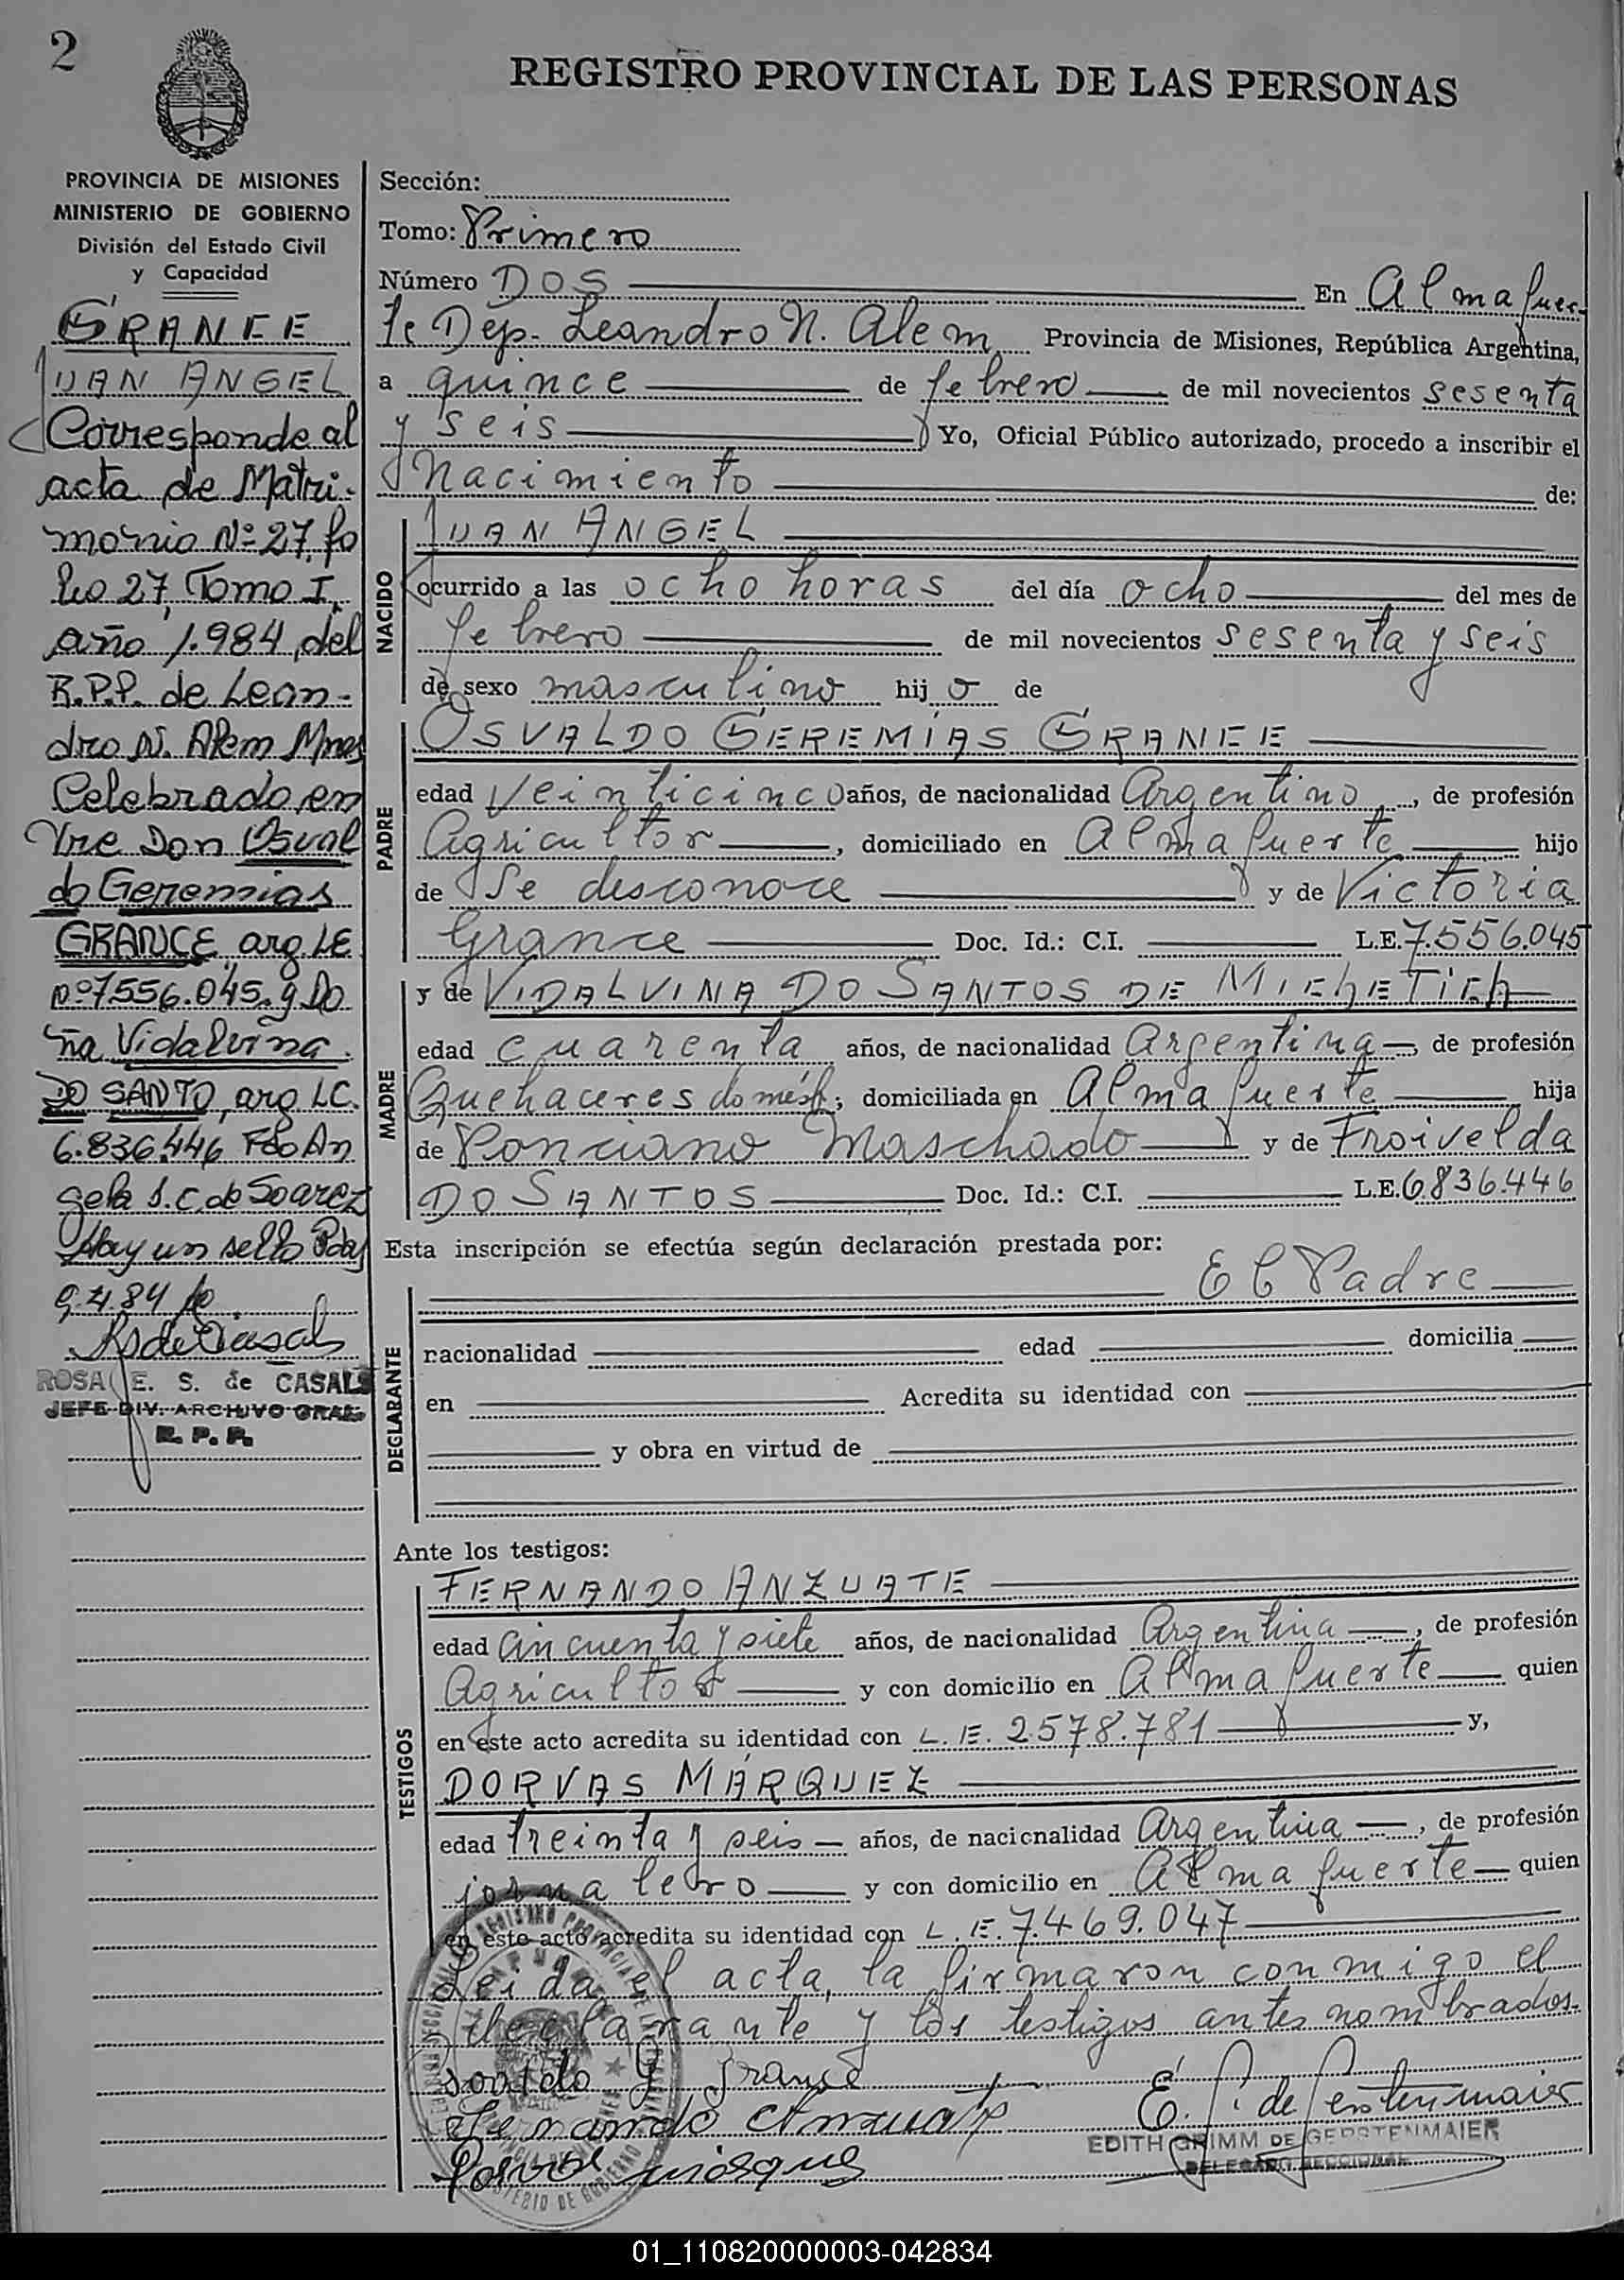 2
REGISTRO PROVINCIAL DE LAS PERSONAS
PROVINCIA DE MISIONES
MINISTERIO DE GOBIERNO
División del Estado Civil
y Capacidad
GRANCE
JUAN ANGEL
Corresponde al
acta de Matri-
monio Nº 27, fo
lio 27, Tomo I,
año 1.984, del
R.P.P. de Lean-
dro N. Alem Mnes
Celebrado en
tre Don Osval
do Geremias
GRANCE, arg. LE
nº 7556.045. y Do
ña Vidalvina
DO SANTO, arg. LC.
6.836.446 Fdo An
gela S.C. de Soarez
Hay un sello Pdas
9.4.84
ROSA E. S. de CASALS
JEFE DIV. ARCHIVO GRAL.
R. P. P.
Sección:
Tomo: Primero
Número DOS En Almafuer-
te Dep. Leandro N. Alem Provincia de Misiones, República Argentina,
a quince de febrero de mil novecientos sesenta
y seis Yo, Oficial Público autorizado, procedo a inscribir el
Nacimiento de:
NACIDO
JUAN ANGEL
ocurrido a las ocho horas del día ocho del mes de
febrero de mil novecientos sesenta y seis
de sexo masculino hijo de
PADRE
OSVALDO GEREMÍAS GRANCE
edad veinticinco años, de nacionalidad Argentino, de profesión
Agricultor, domiciliado en Almafuerte hijo
de Se desconoce y de Victoria
Grance Doc. Id.: C.I. L.E. 7.556.045
MADRE
y de VIDALVINA DO SANTOS DE MICHETICH
edad cuarenta años, de nacionalidad Argentina, de profesión
Quehaceres domést; domiciliada en Almafuerte hija
de Ponciano Maschado y de Froivelda
DO SANTOS Doc. Id.: C.I. L.E. 6836.446
Esta inscripción se efectúa según declaración prestada por:
El Padre
DECLARANTE
nacionalidad edad domicilia
en Acredita su identidad con
y obra en virtud de
Ante los testigos:
TESTIGOS
FERNANDO ANZUATE
edad cincuenta y siete años, de nacionalidad Argentina, de profesión
Agricultor y con domicilio en Almafuerte quien
en este acto acredita su identidad con L.E. 2578.781 y,
DORVAS MÁRQUEZ
edad treinta y seis años, de nacionalidad Argentina, de profesión
jornalero y con domicilio en Almafuerte quien
en este acto acredita su identidad con L.E. 7.469.047
Leida el acta, la firmaron conmigo el
declarante y los testigos antes nombrados.
Fernando Anzuate
E. G. de Gerstenmaier
EDITH GRIMM DE GERSTENMAIER
DELEGADO SECCIONAL
01_110820000003-042834